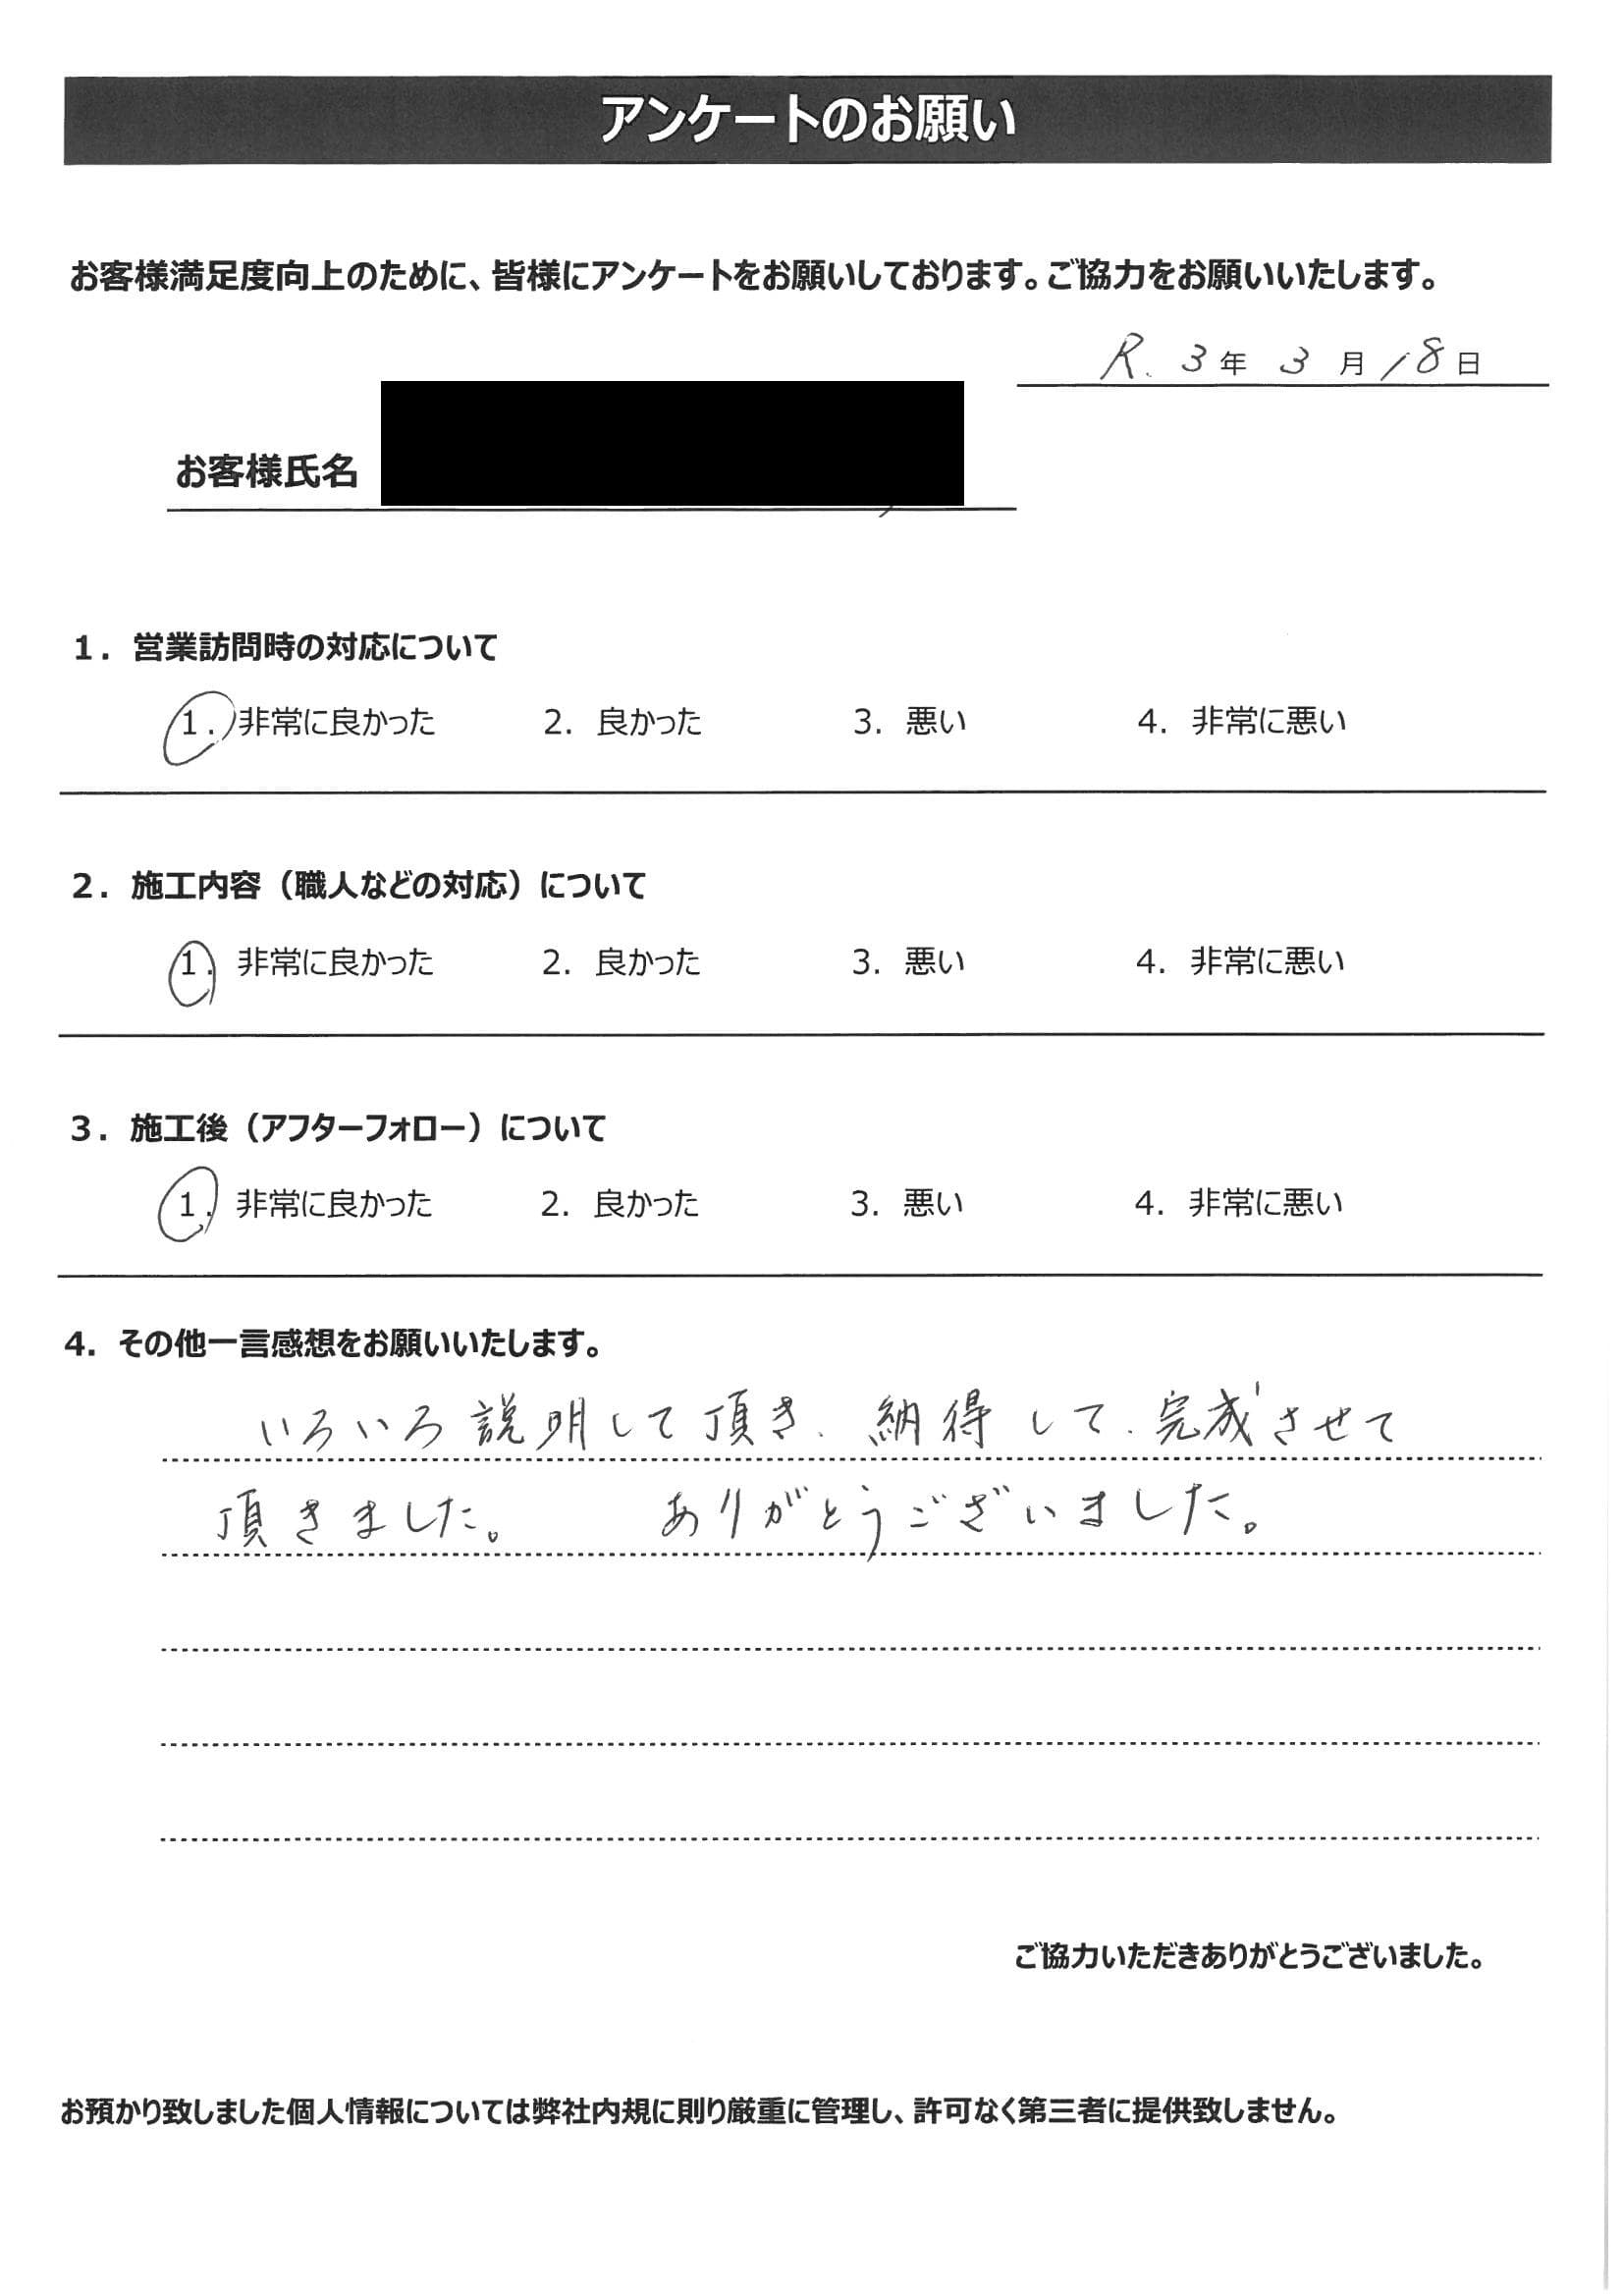 アンケートのお願い
お客様満足度向上のために、皆様にアンケートをお願いしております。ご協力をお願いいたします。
R.3年 3月 18日
お客様氏名
1. 営業訪問時の対応について
1. 非常に良かった 2. 良かった 3. 悪い 4. 非常に悪い
2. 施工内容（職人などの対応）について
1. 非常に良かった 2. 良かった 3. 悪い 4. 非常に悪い
3. 施工後（アフターフォロー）について
1. 非常に良かった 2. 良かった 3. 悪い 4. 非常に悪い
4. その他一言感想をお願いいたします。
いろいろ説明して頂き、納得して、完成させて
頂きました。 ありがとうございました。
ご協力いただきありがとうございました。
お預かり致しました個人情報については弊社内規に則り厳重に管理し、許可なく第三者に提供致しません。